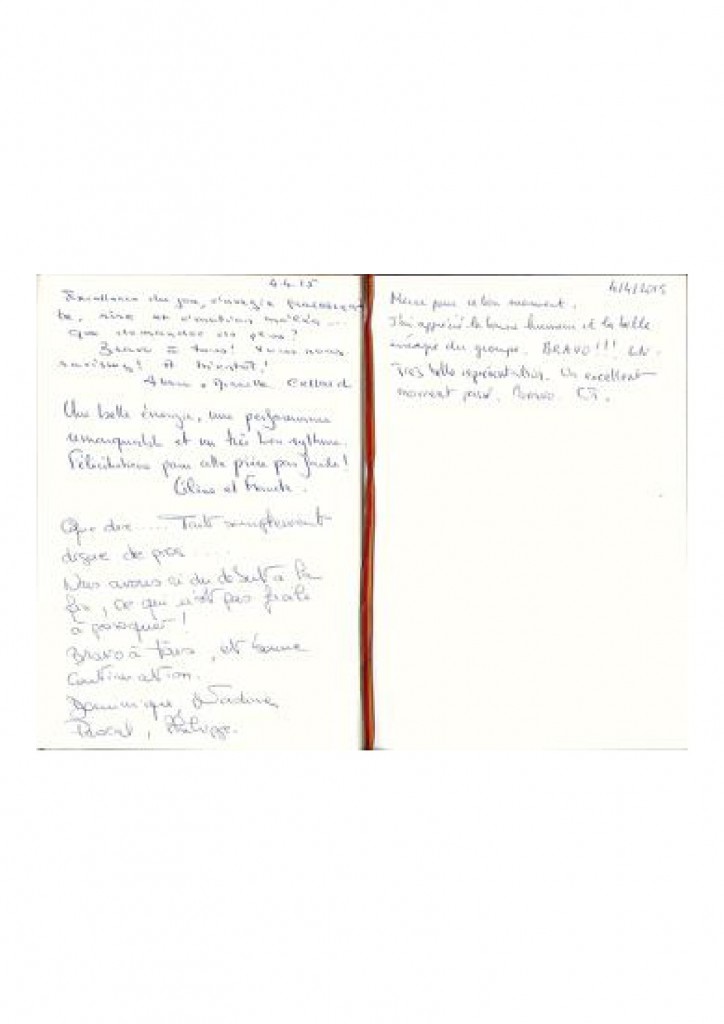 4.4.15
Excellence du jeu, énergie
te, rire et émotion mêlés ...
que demander de plus?
Bravo à tous! Vous nous
ravissez! A bientôt!
Une belle énergie, une performance
remarquable et un très bon rythme.
Félicitations pour cette pièce pas facile!
Céline et Franck.
Que dire ..... Tout simplement
digne de pros .....
Nous avons ri du début à la
fin, ce qui n'est pas facile
à
Bravo à tous, et bonne
continuation.
Dominique,
Pascal, Philippe.
4/4/2015
Merci pour ce bon moment.
J'ai apprécié la bonne humeur et la belle
énergie du groupe. BRAVO!!!
Très belle représentation. Un excellent
moment passé. Bravo.